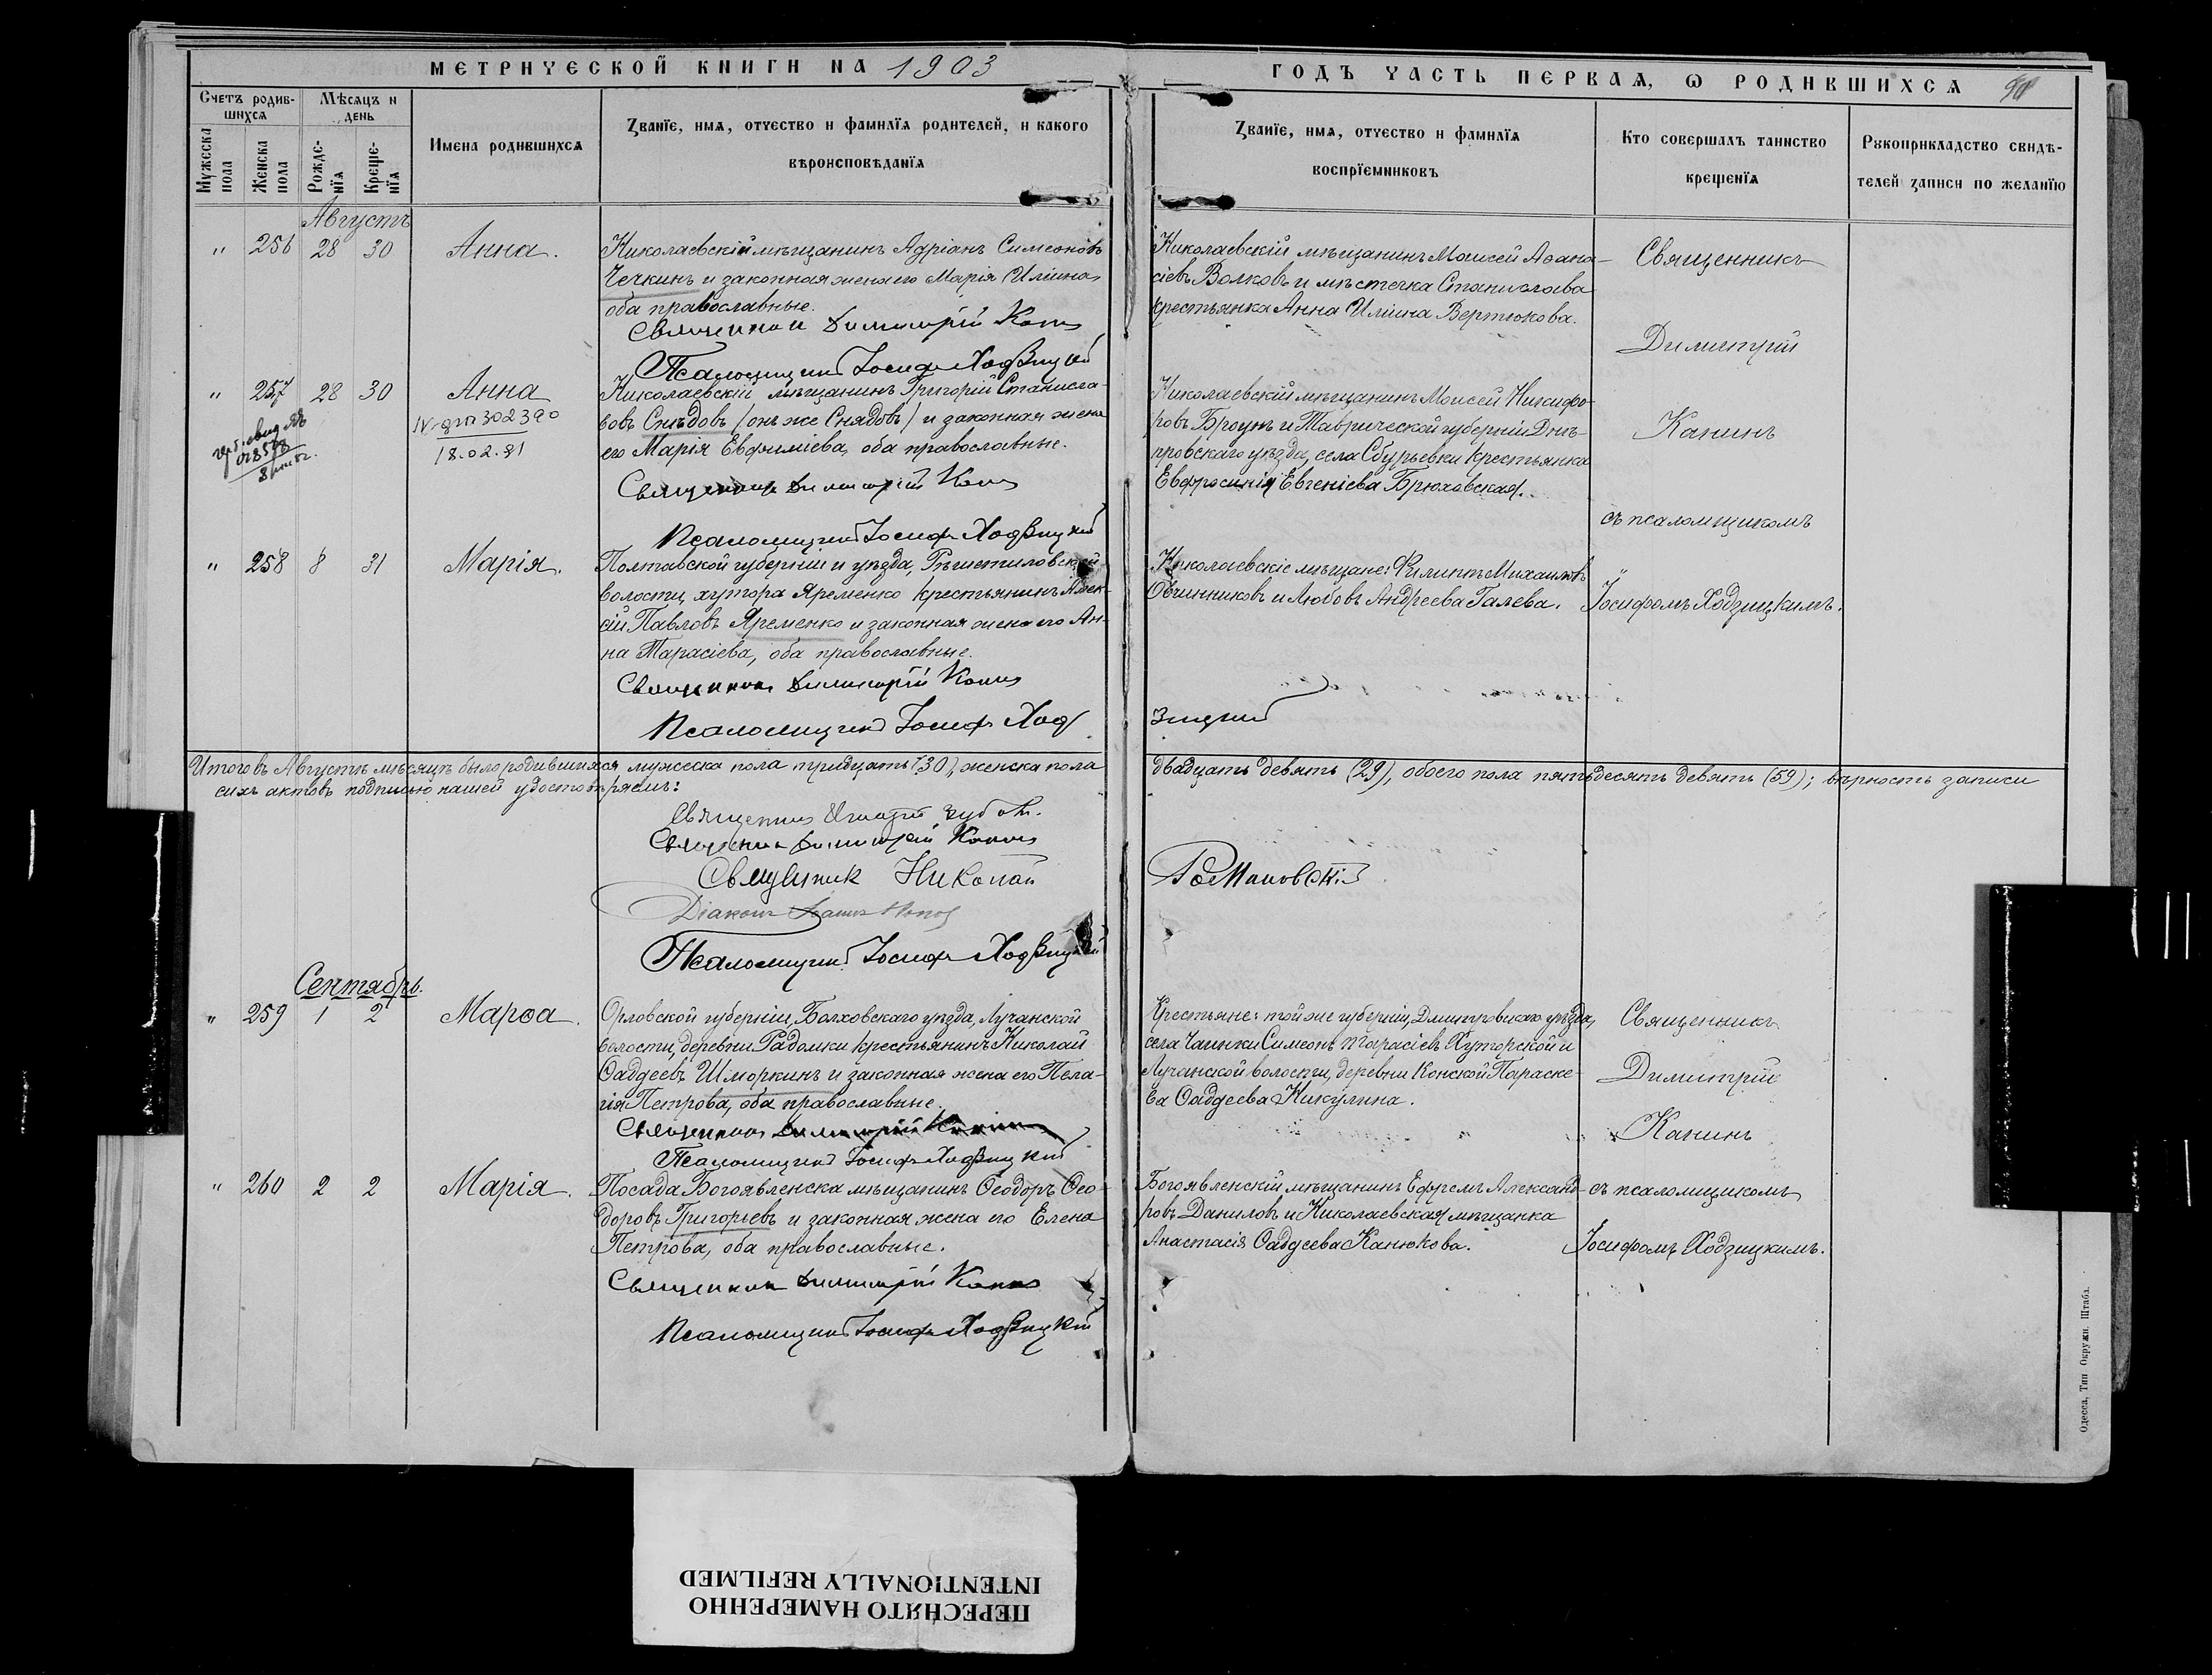 МЕТРИЧЕСКОЙ КНИГИ НА 1903
ГОДЪ ЧАСТЬ ПЕРВАЯ, Ѡ РОДИВШИХСЯ
Счетъ родив-
шихся
Мѣсяцъ и
день
Мужеска
пола
Женска
пола
Рожде-
нїя
Креще-
нїя
Имена родившихся
Званїе, имя, отчество и фамилїя родителей, и какого
вѣроисповѣданїя
Званїе, имя, отчество и фамилїя
воспрїемниковъ
Кто совершалъ таинство
крещенїя
Рукоприкладство свидѣ-
телей записи по желанїю
Августъ
" 256 28 30 Анна.
Николаевскій мѣщанинъ Адріанъ Симеоновъ
Чечкинъ и законная жена его Марія Иліина,
оба православные.
Священник Димитрій Канин
Псаломщикъ Іосиф Ходзицкій
Николаевскій мѣщанинъ Моисей Аѳана-
сіевъ Волковъ и мѣстечка Станислава
крестьянка Анна Иліина Вертюкова.
Священникъ
Димитрій
" 257 28 30 Анна
302390
18.02.81
Николаевскій мѣщанинъ Григорій Станисла-
вовъ Снѣдовъ (онъ же Снядовъ) и законная жена
его Марія Евфиміева, оба православные.
Священник Димитрій Канин
Псаломщикъ Іосиф Ходзицкій
Николаевскій мѣщанинъ Моисей Никифо-
ровъ Броунъ и Таврической губерніи Днѣ-
провскаго уѣзда, села Сбурьевки крестьянка
Евфросинія Евгеніева Брюховская.
Канинъ
съ псаломщикомъ
" 258 8 31 Марія.
Полтавской губерніи и уѣзда, Рѣшетиловской
волости, хутора Яременко крестьянинъ Алек-
сій Павловъ Яременко и законная жена его Ан-
на Тарасіева, оба православные.
Священник Димитрій Канин
Псаломщикъ Іосиф Ход
зицкій
Николаевскіе мѣщане: Филиппъ Михаиловъ
Овчинниковъ и Любовь Андреева Галева.
Іосифомъ Ходзицкимъ.
Итого въ Августѣ мѣсяцѣ было родившихся мужеска пола тридцать (30), женска пола
двадцать девять (29), обоего пола пятьдесятъ девять (59); вѣрность записи
сихъ актовъ подписью нашей удостовѣряемъ:
Священник Димитрій Канин
Священник Николай
Романовскій
Діаконъ Іоаннъ
Псаломщикъ Іосиф Ходзицкій
Сентябрь.
" 259 1 2 Марѳа.
Орловской губерніи, Болховскаго уѣзда, Лучанской
волости, деревни Радомки крестьянинъ Николай
Ѳаддеевъ Шморкинъ и законная жена его Пела-
гія Петрова, оба православные.
Священник Димитрій Канин
Псаломщикъ Іосиф Ходзицкій
Крестьяне: той же губерніи, Дмитровскаго уѣзда,
села Чаинки Симеонъ Тарасіевъ Хуторской и
Лучанской волости, деревни Конской Параске-
ва Ѳаддеева Никулина.
Священникъ
Димитрій
Канинъ
" 260 2 2 Марія.
Посада Богоявленска мѣщанинъ Ѳеодоръ Ѳео-
доровъ Григорьевъ и законная жена его Елена
Петрова, оба православные.
Священник Димитрій Канин
Псаломщикъ Іосиф Ходзицкій
Богоявленскій мѣщанинъ Ефремъ Александ-
ровъ Даниловъ и Николаевская мѣщанка
Анастасія Ѳаддеева Канюкова.
съ псаломщикомъ
Іосифомъ Ходзицкимъ.
Одесса, Тип Окружн. Штаба.
ПЕРЕСНЯТО НАМЕРЕННО
INTENTIONALLY REFILMED